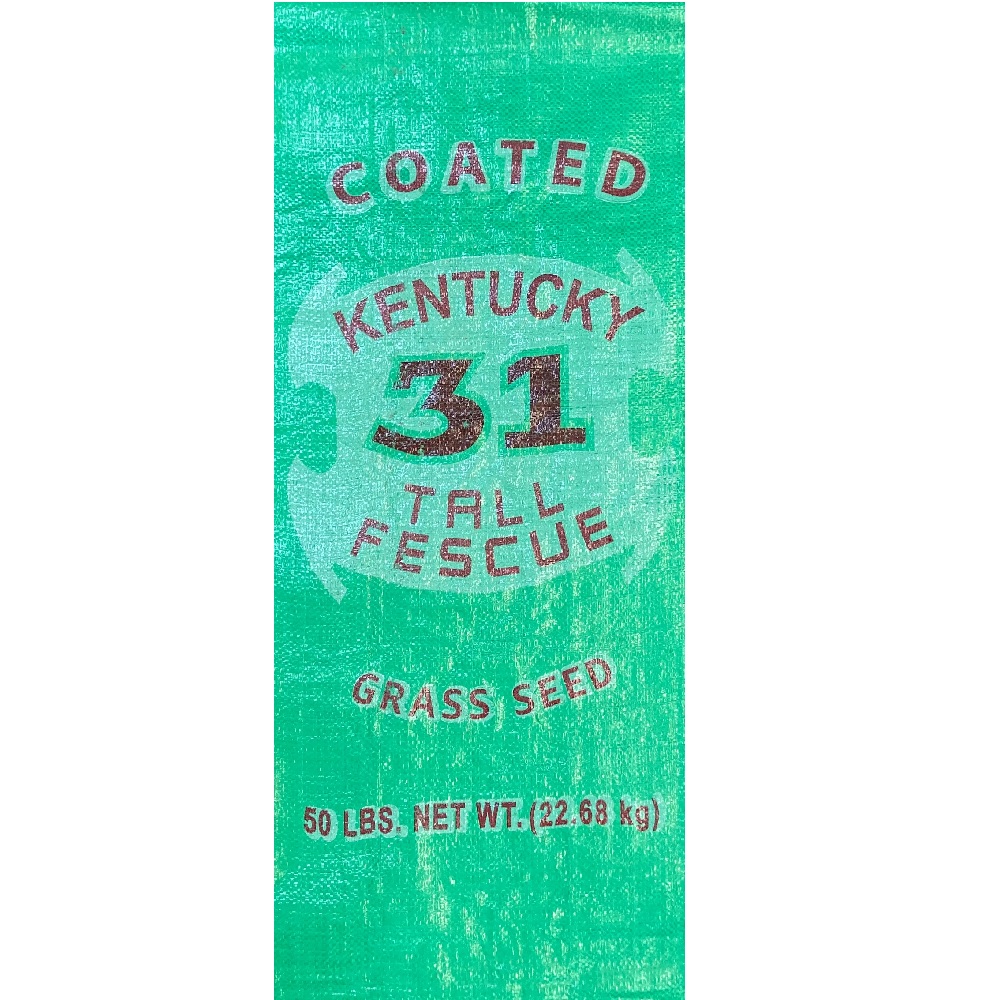 COATED
KENTUCKY
31
TALL
FESCUE
GRASS SEED
50 LBS. NET WT. (22.68 kg)